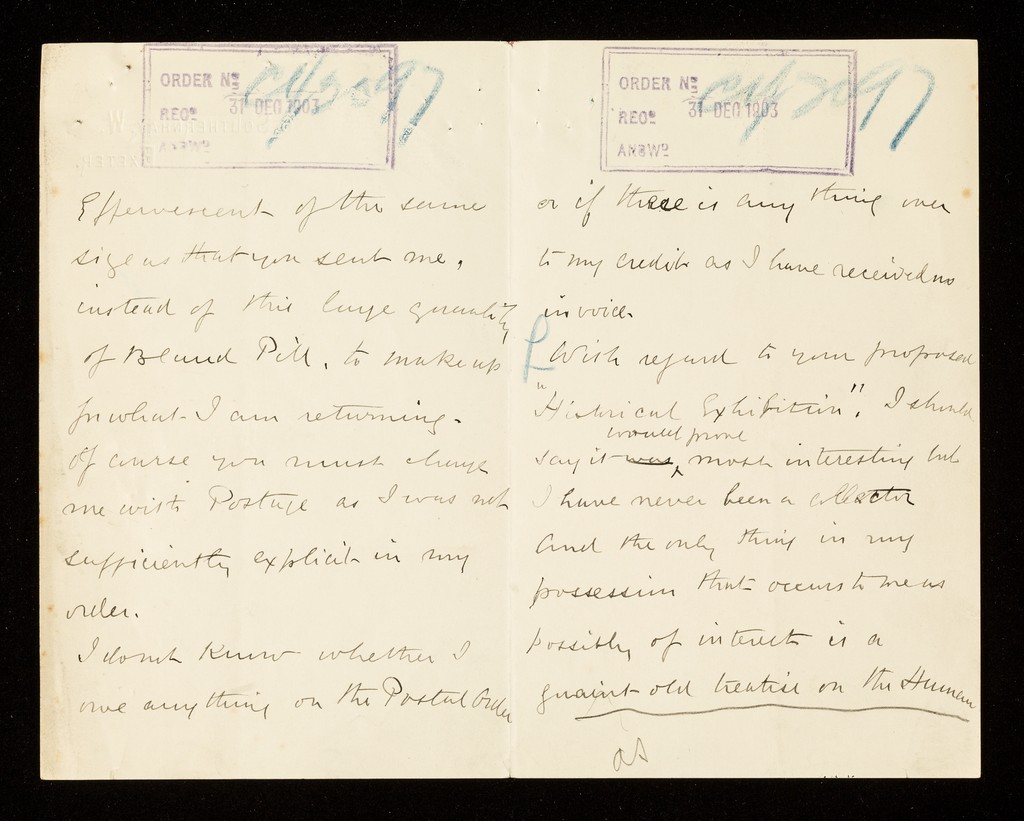 ORDER No
RECD 31 DEC 1903
ANSWD
Effervescent of the same
size as that you sent me,
instead of this large quantity
of Blaud Pill, to make up
for what I am returning.
Of course you must charge
me with Postage as I was not
sufficiently explicit in my
order.
I don't know whether I
owe anything on the Postal Order
ORDER No
RECD 31 DEC 1903
ANSWD
or if there is any thing over
to my credit as I have received no
invoice.
With regard to your proposed
"Historical Exhibition". I should
would prove
say it was most interesting but
I have never been a collector
and the only thing in my
possession that occurs to me as
possibly of interest is a
quaint old treatise on the Human